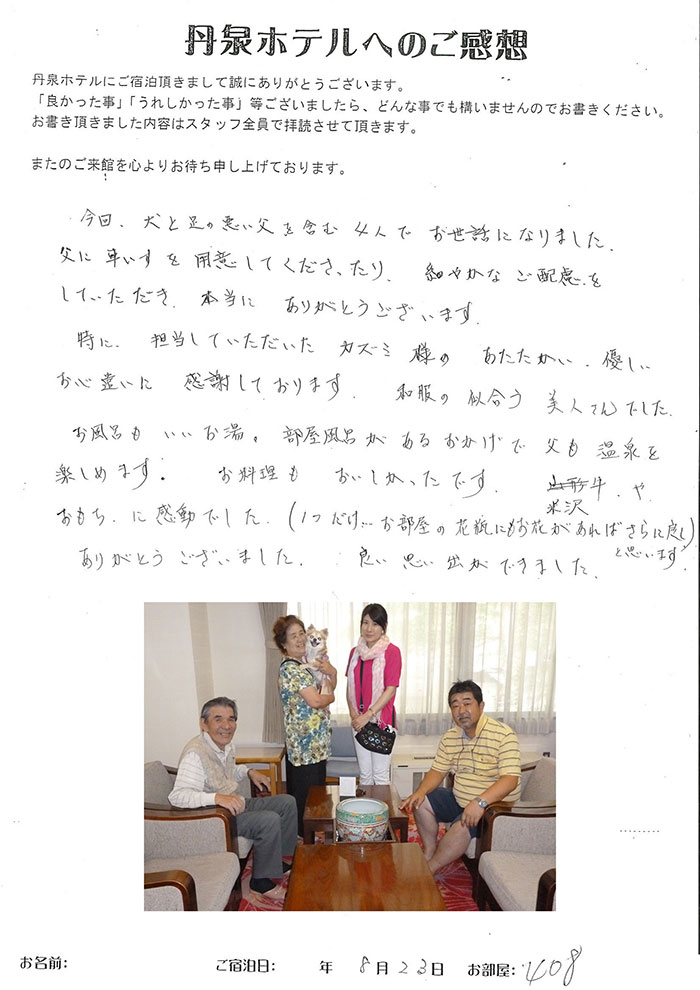 丹泉ホテルへのご感想
丹泉ホテルにご宿泊頂きまして誠にありがとうございます。
「良かった事」「うれしかった事」等ございましたら、どんな事でも構いませんのでお書きください。
お書き頂きました内容はスタッフ全員で拝読させて頂きます。
またのご来館を心よりお待ち申し上げております。
今回、犬と足の悪い父を含む4人で お世話になりました。
父に車いすを用意してくださったり、細やかなご配慮を
していただき、本当に ありがとうございます。
特に、担当していただいた カズミ様の あたたかい、優しい
お心遣いに 感謝しております。 和服の似合う 美人さんでした。
お風呂もいいお湯。部屋風呂があるおかげで 父も温泉を
楽しめます。 お料理も おいしかったです。 山形牛、や
米沢
おもち、に感動でした。(1つだけ…お部屋の花瓶にもお花があればさらに良い)
と思います
ありがとうございました。 良い思い出ができました。
お名前: ご宿泊日: 年 8月23日 お部屋: 408